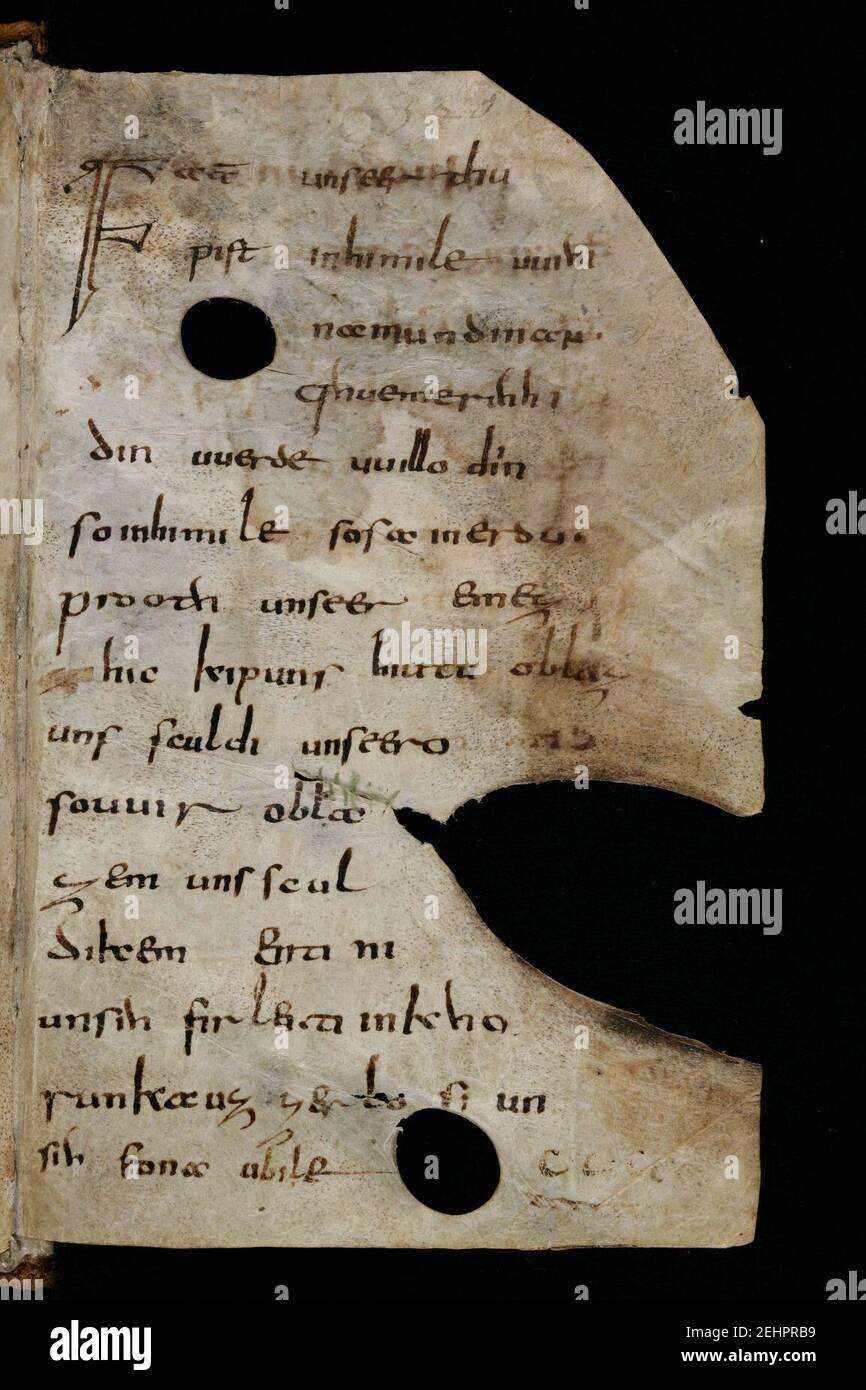 320
Fat unseer thu
pist inhimile uuihi
namundinan
qhuemerihhi
din uuerde uuillo diin
soinhimile sosa inerdu
prooth unseer emez
zhic kipuns hiutu oblaz
uns sculdi unseero
souuir obla
zem uns scul
dikem enti ni
unsih firleiti inkho
runkauz zerlo si un
sih fona ubile
alamy
Image ID: 2EHPRB9
www.alamy.com